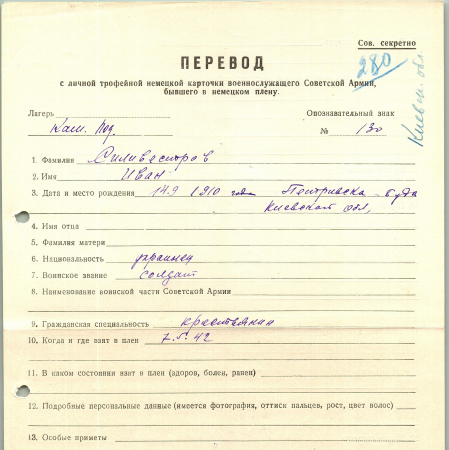 Сов. секретно
280
Киевск. обл.
ПЕРЕВОД
с личной трофейной немецкой карточки военнослужащего Советской Армии,
бывшего в немецком плену.
Лагерь
Опознавательный знак
Кам. Под.
№ 130
1. Фамилия Силивестров
2. Имя Иван
3. Дата и место рождения 14.9 1910 года Петривска-буда
Киевской обл,
4. Имя отца
5. Фамилия матери
6. Национальность украинец
7. Воинское звание солдат
8. Наименование воинской части Советской Армии
9. Гражданская специальность крестьянин
10. Когда и где взят в плен 7.5.42
11. В каком состоянии взят в плен (здоров, болен, ранен)
12. Подробные персональные данные (имеется фотография, оттиск пальцев, рост, цвет волос)
13. Особые приметы